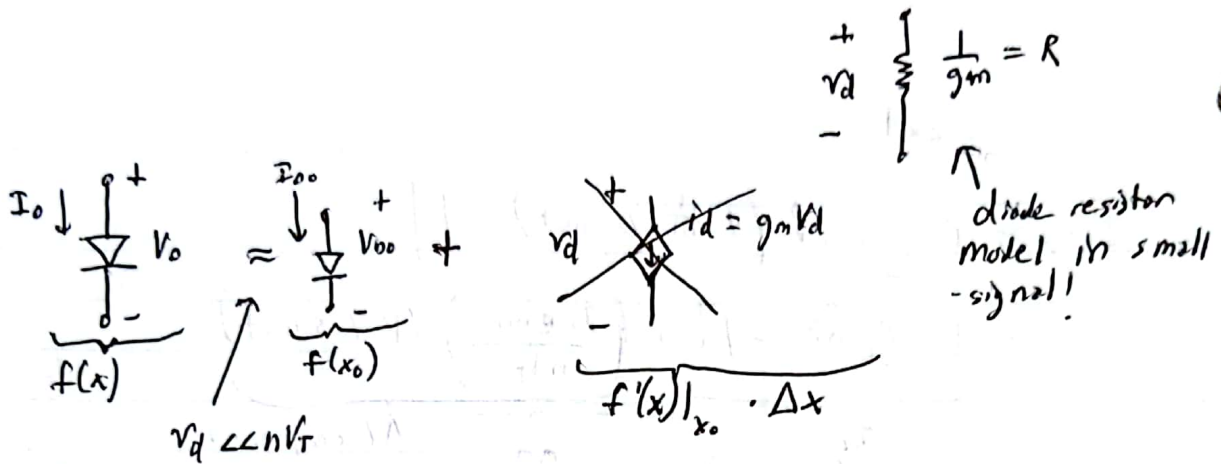 +
v_d
-
1/gm = R
diode resistor
model in small
-signal!
I_D ↓
+
V_D
-
f(x)
≈
v_d << nV_T
I_D0
+
V_D0
-
f(x_0)
+
+
v_d
-
i_d = g_m v_d
f'(x)|_x_0 · Δx